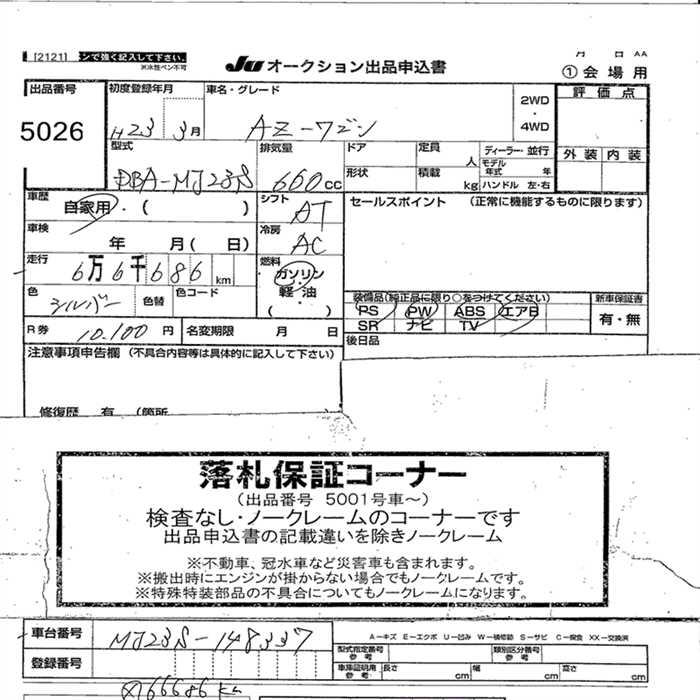 [2121] ンで強く記入して下さい。
※水性ペン不可
JU オークション出品申込書
月 日 AA
①会場用
出品番号 5026
初度登録年月 H23 3月
車名・グレード AZ-ワゴン
2WD
4WD
評価点
外装 内装
型式 DBA-MJ23S
排気量 660cc
ドア
形状
定員 人
積載 kg
ディーラー・並行
モデル年式 年
ハンドル 左・右
車歴 自家用・( )
シフト AT
セールスポイント (正常に機能するものに限ります)
車検 年 月( 日)
冷房 AC
走行 6万6千686km
燃料 ガソリン・軽油・( )
色 シルバー 色替 色コード
装備品(純正品に限り○をつけてください)
PS PW ABS エアB
SR ナビ TV
新車保証書
有・無
R券 10.100円 名変期限 月 日
後日品
注意事項申告欄 (不具合内容等は具体的に記入して下さい)
修復歴 有 (箇所
落札保証コーナー
(出品番号 5001号車～)
検査なし・ノークレームのコーナーです
出品申込書の記載違いを除きノークレーム
※不動車、冠水車など災害車も含まれます。
※搬出時にエンジンが掛からない場合でもノークレームです。
※特殊特装部品の不具合についてもノークレームになります。
車台番号 MJ23S-148337
A－キズ E－エクボ U－凹み W－補修跡 S－サビ C－腐食 XX－交換済
登録番号
型式指定番号 参考
類別区分番号 参考
車庫証明用 参考 長さ cm 幅 cm 高さ cm
66686km